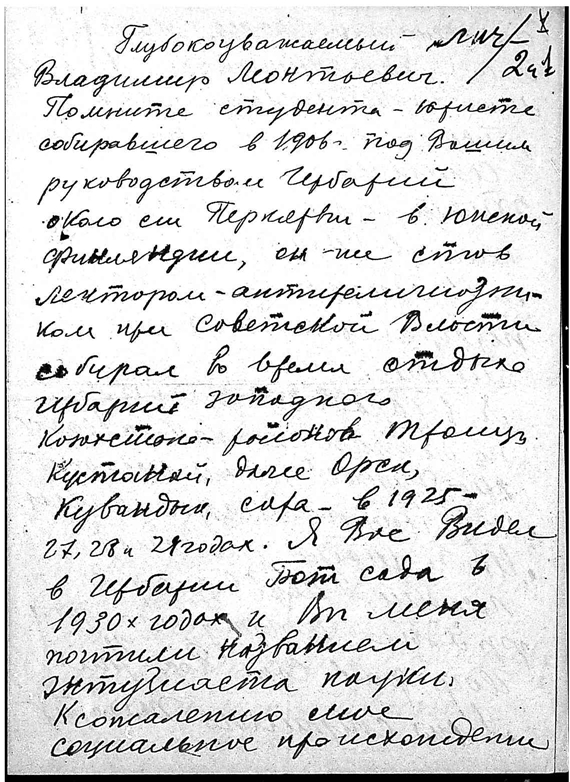 Глубокоуважаемый
Владимир Леонтьевич.
Помните студента - юриста
собиравшего в 1906 г. под Вашим
руководством Гербарий
около ст Перкярви - в южной
Финляндии, он-же став
лектором - антирелигиозни-
ком при Советской Власти
собирал во время отдыха
Гербарий западного
Кохстана - районов Троицк
Кустанай, даже Орск,
Кувандык, Сара - в 1925-
27, 28 и 29 годах. Я Вас Видел
в Гербарии Бот сада в
1930х годах и Вы меня
почтили названием
энтузиаста науки.
К сожалению мое
социальное происхождение